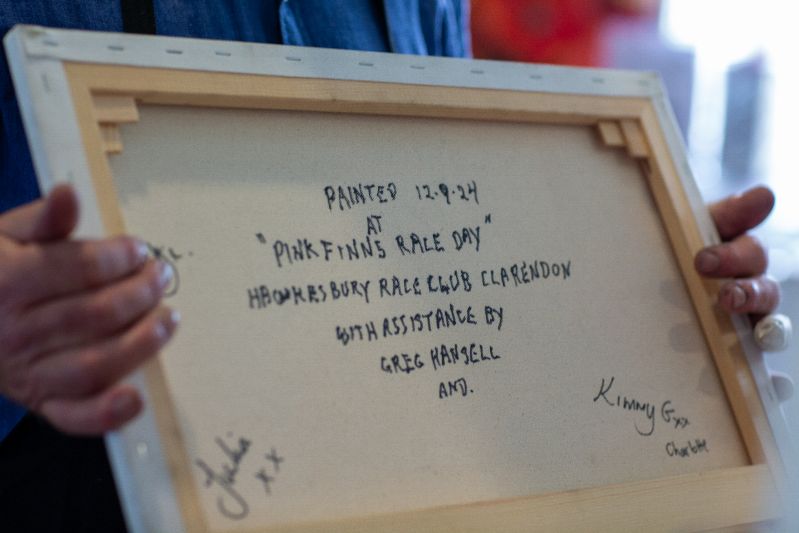 PAINTED 12.9.24
AT
"PINK FINNS RACE DAY"
HAWKESBURY RACE CLUB CLARENDON
WITH ASSISTANCE BY
GREG HANSELL
AND.
Kimmy G xx
Charlotte
Julia
xx